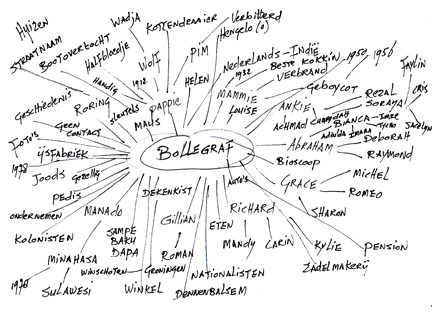 Huizen
Wadja
Kottendraaier
Verbitterd
Hengelo (O)
STRAATNAAM
BOOTOVERTOCHT
Halfbloedje
WOLF
PIM
Nederlands-Indië
1912
HELEN
1932
BESTE KOKKIN
1950
1956
Handig
PAPPIE
MAMMIE
VERBRAND
Geboycot
JAYLIN
Geschiedenis
RORING
Sleutels
MAUS
LOUISE
ANKIE
REZAL
SORAYA
CRIS
Foto's
GEEN
CONTACT
ACHMAD
BIANCA
ABRAHAM
DEBORAH
JOCELYN
IJSFABRIEK
BOLLEGRAF
BIOSCOOP
RAYMOND
1978
JOODS
Gezellig
PEDIS
DEKENKIST
AUTO'S
GRACE
MICHEL
ROMEO
ONDERNEMEN
MANADO
Gillian
ETEN
RICHARD
SHARON
KOLONISTEN
SAMPE
BAKU
DAPA
MINAHASA
ROMAN
MANDY
CARIN
KYLIE
PENSION
WINSCHOTEN
Groningen
NATIONALISTEN
ZADELMAKERIJ
SULAWESI
WINKEL
DENNENBALSEM